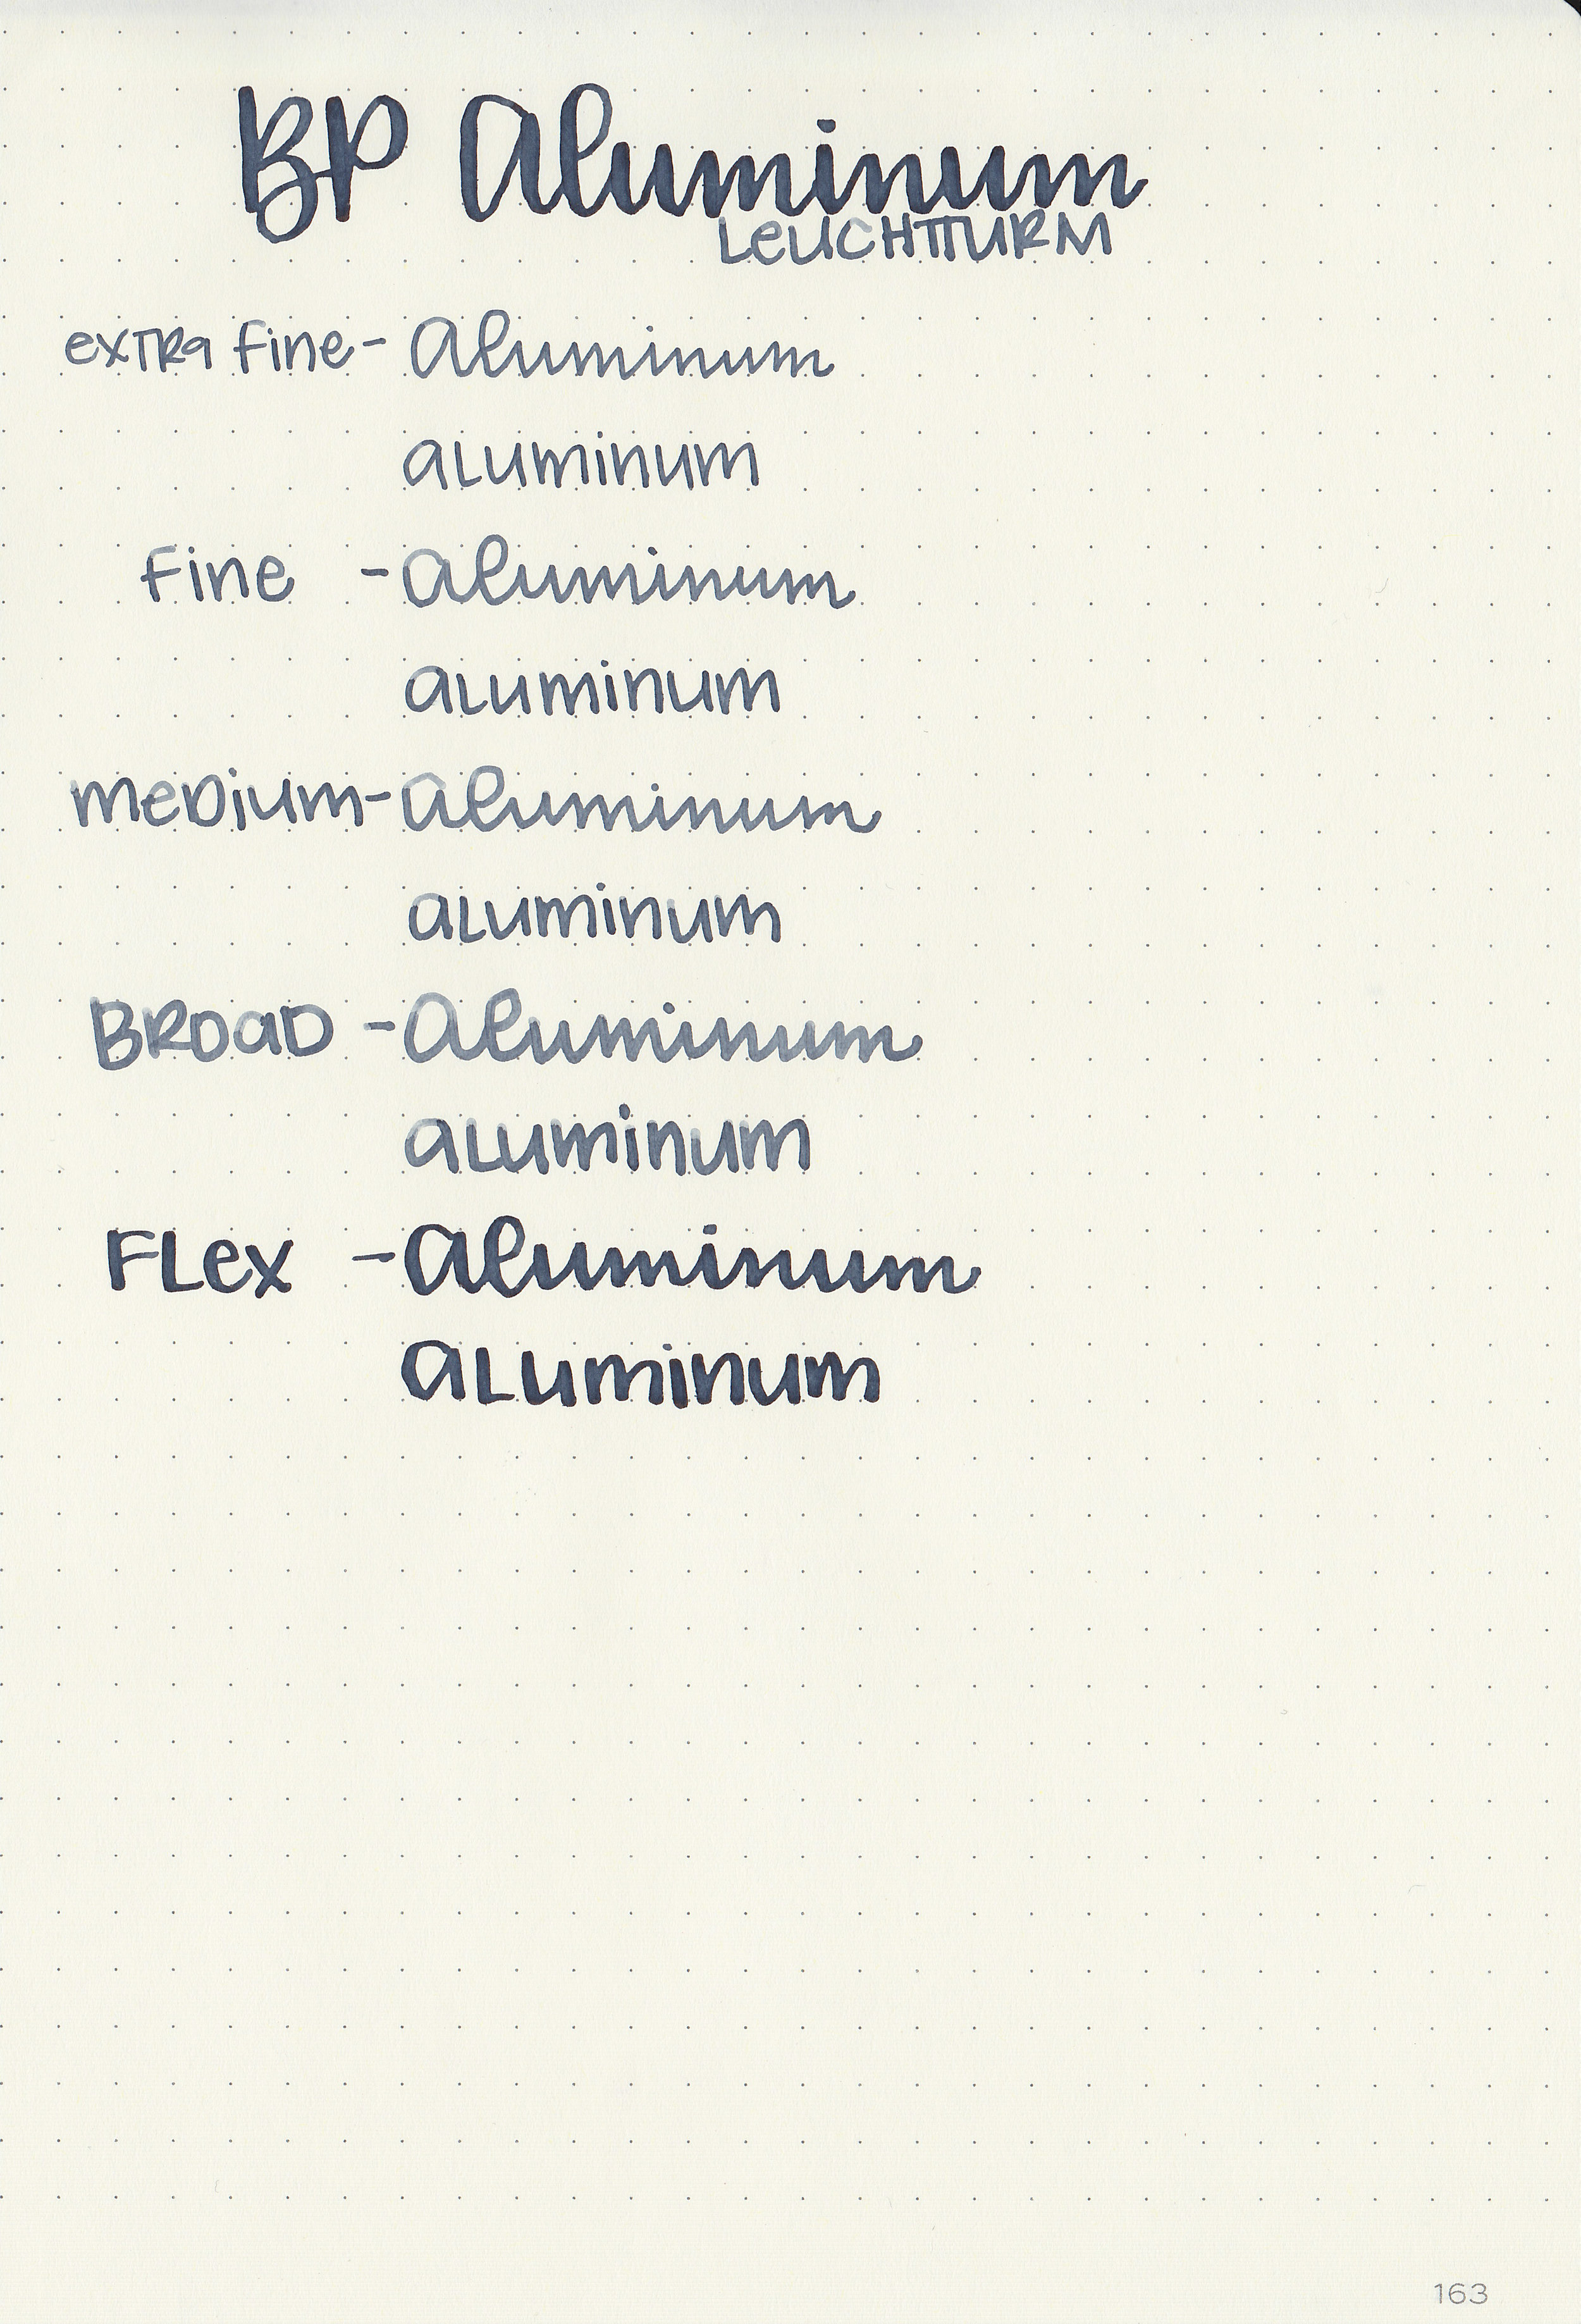 BP Aluminum
LEUCHTTURM
extra fine- Aluminum
aluminum
fine - Aluminum
aluminum
medium- Aluminum
aluminum
Broad - Aluminum
aluminum
Flex - Aluminum
aluminum
163